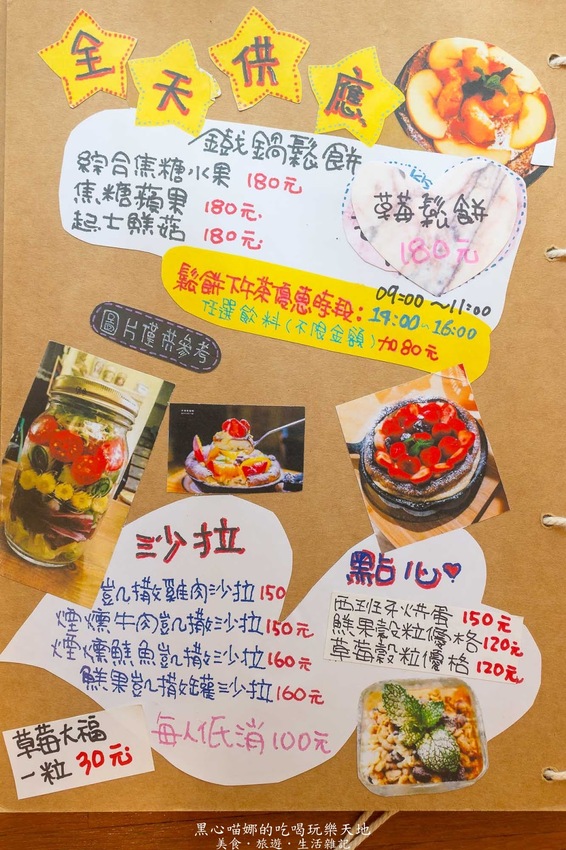 全天供應
鐵鍋鬆餅
綜合焦糖水果 180元
焦糖蘋果 180元
起士鮮菇 180元
草莓鬆餅
180元
鬆餅下午茶優惠時段:
09:00~11:00
14:00~16:00
任選飲料(不限金額)加80元
圖片僅供參考
沙拉
凱撒雞肉沙拉 150
煙燻牛肉凱撒沙拉 150元
煙燻鮭魚凱撒沙拉 160元
鮮果凱撒罐沙拉 160元
每人低消100元
點心
西班牙烘蛋 150元
鮮果穀粒優格 120元
草莓穀粒優格 120元
草莓大福
一粒 30元
黑心喵娜的吃喝玩樂天地
美食・旅遊・生活雜記